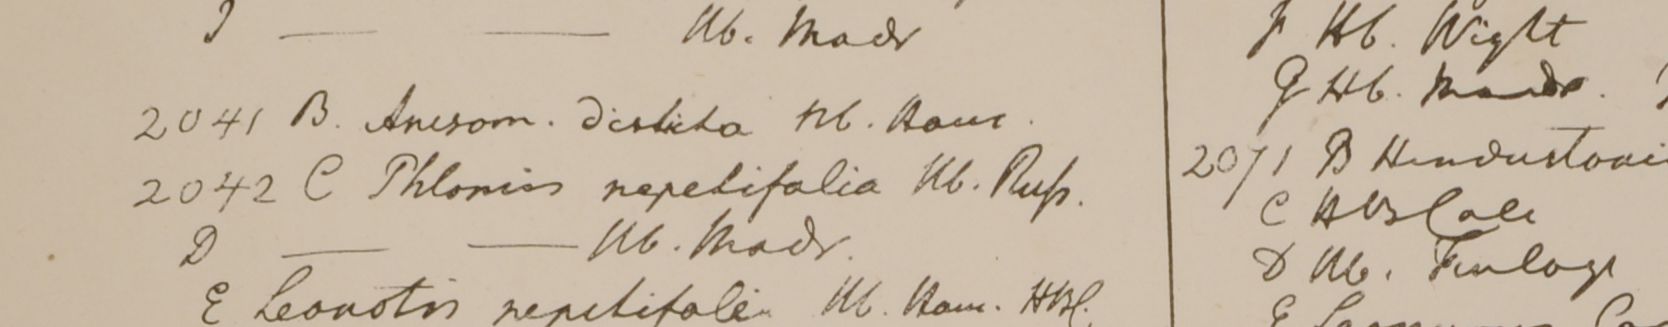 J — — Hb. Madr
2041 B. Anisom. disticha Hb. Ham.
2042 C Phlomis nepetifolia Hb. Russ.
D — — Hb. Madr.
E Leonotis nepetifolia Hb. Ham. HBC.
F Hb. Wight
G Hb. Madr.
2071 B Hindustani
C HBCalc
D Hb. Finlays
E